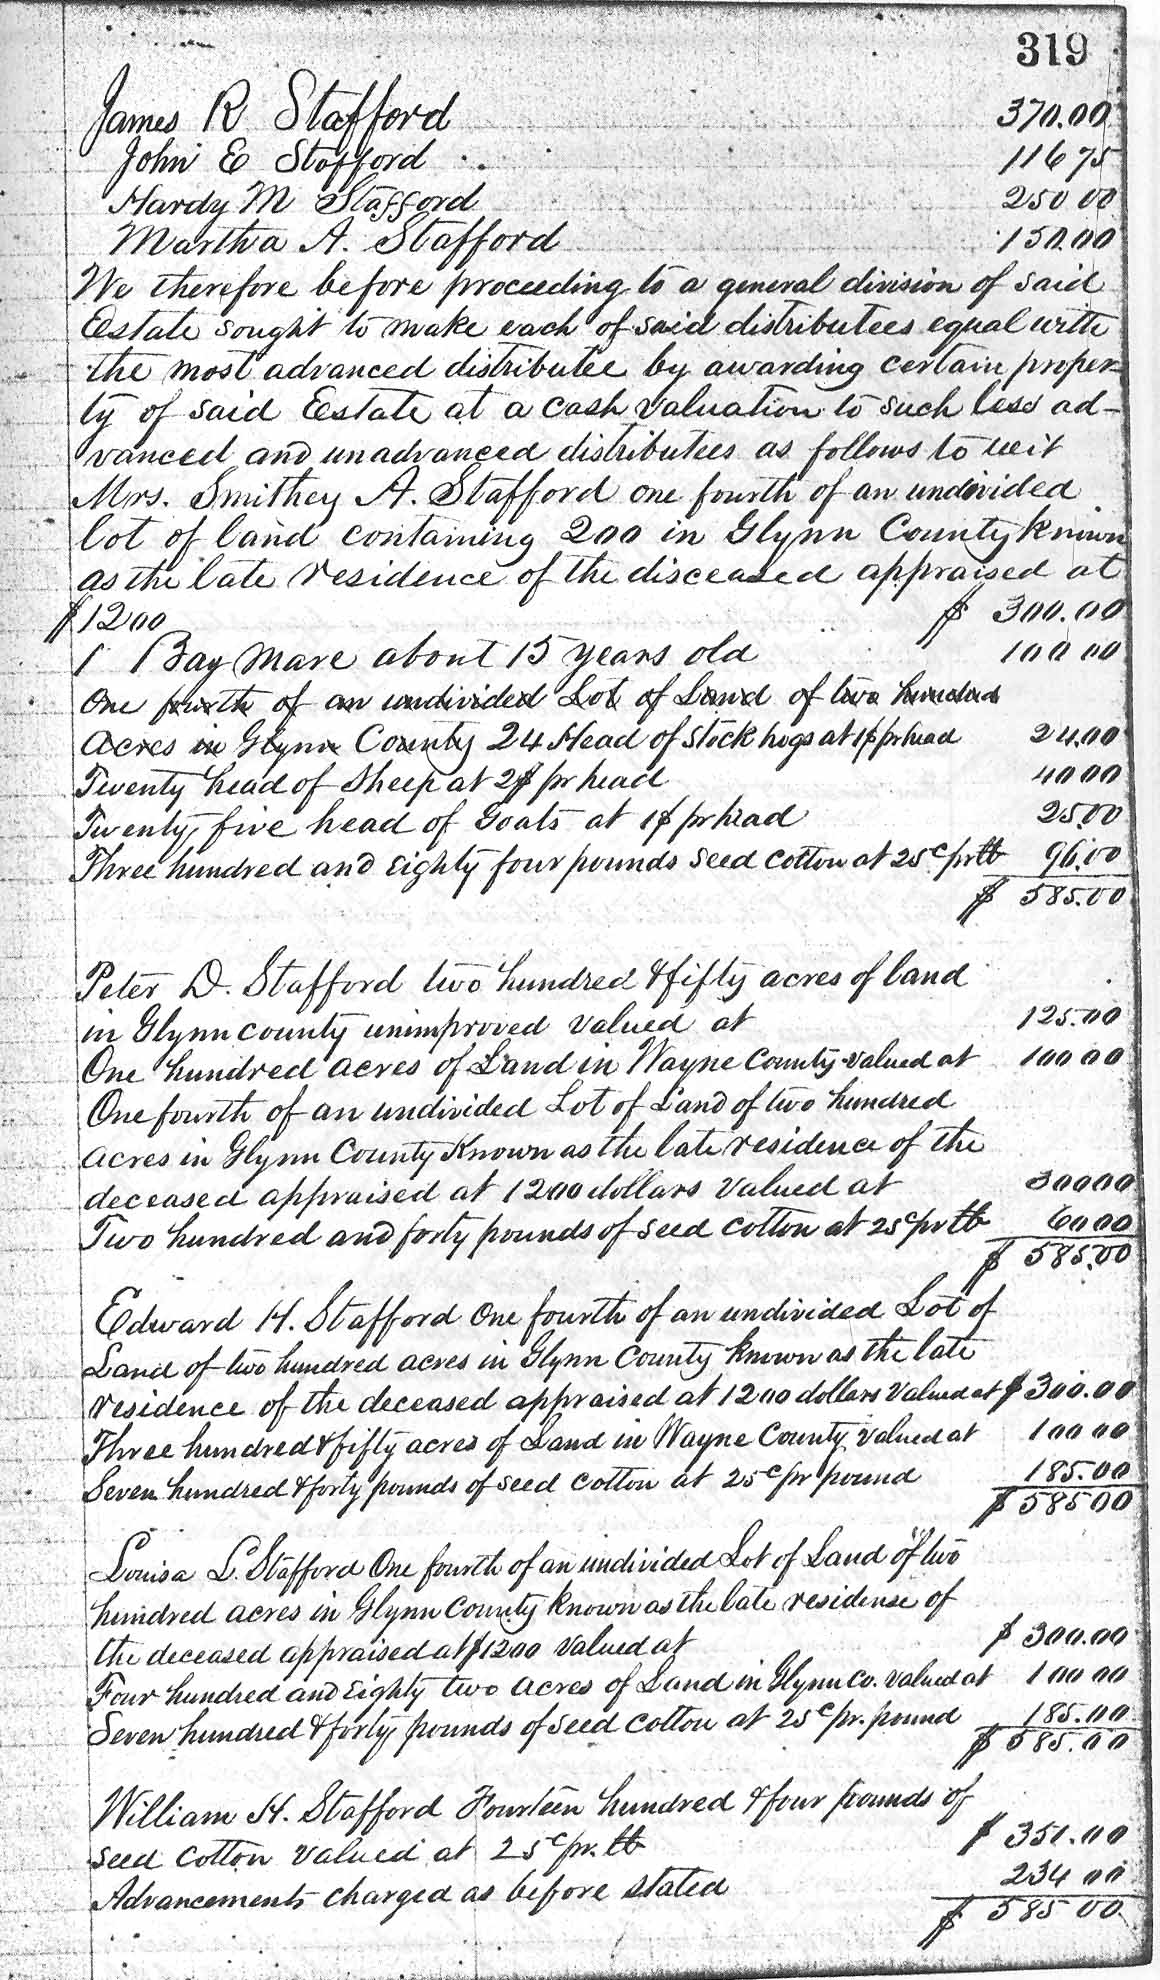 319
James R Stafford 370.00
John E Stafford 116 75
Hardy M Stafford 250 00
Martha A. Stafford 150.00
We therefore before proceeding to a general division of said
Estate sought to make each of said distributees equal with
the most advanced distributee by awarding certain proper=
ty of said Estate at a cash valuation to such less ad-
vanced and unadvanced distributees as follows to wit
Mrs. Smithey A. Stafford one fourth of an undivided
lot of land containing 200 in Glynn County known
as the late residence of the disceased appraised at
$1200 $ 300.00
1 Bay Mare about 15 years old 100 00
One fourth of an undivided Lot of Land of two hundred
Acres in Glynn County 24 Head of Stock hogs at 1$ pr head 24.00
Twenty head of Sheep at 2$ pr head 40 00
Twenty five head of Goats at 1$ pr head 25.00
Three hundred and Eighty four pounds seed cotton at 25c pr lb 96.00
$ 585.00
Peter D. Stafford two hundred & fifty acres of land
in Glynn county unimproved valued at 125.00
One hundred acres of Land in Wayne County valued at 100 00
One fourth of an undivided Lot of Land of two hundred
acres in Glynn County Known as the late residence of the
deceased appraised at 1200 dollars valued at 300 00
Two hundred and forty pounds of seed cotton at 25c pr lb 60.00
$ 585.00
Edward H. Stafford One fourth of an undivided Lot of
Land of two hundred acres in Glynn County known as the late
residence of the deceased appraised at 1200 dollars valued at $ 300.00
Three hundred & fifty acres of Land in Wayne County valued at 100 00
Seven hundred & forty pounds of seed cotton at 25c pr pound 185.00
$ 585 00
Louisa L. Stafford One fourth of an undivided Lot of Land of two
hundred acres in Glynn County known as the late residense of
the deceased appraised at $1200 valued at $ 300.00
Four hundred and Eighty two acres of Land in Glynn Co. valued at 100 00
Seven hundred & forty pounds of seed cotton at 25c pr. pound 185.00
$ 585.00
William H. Stafford Fourteen hundred & four pounds of
seed cotton valued at 25c pr. lb $ 351.00
Advancements charged as before stated 234 00
$ 585 00